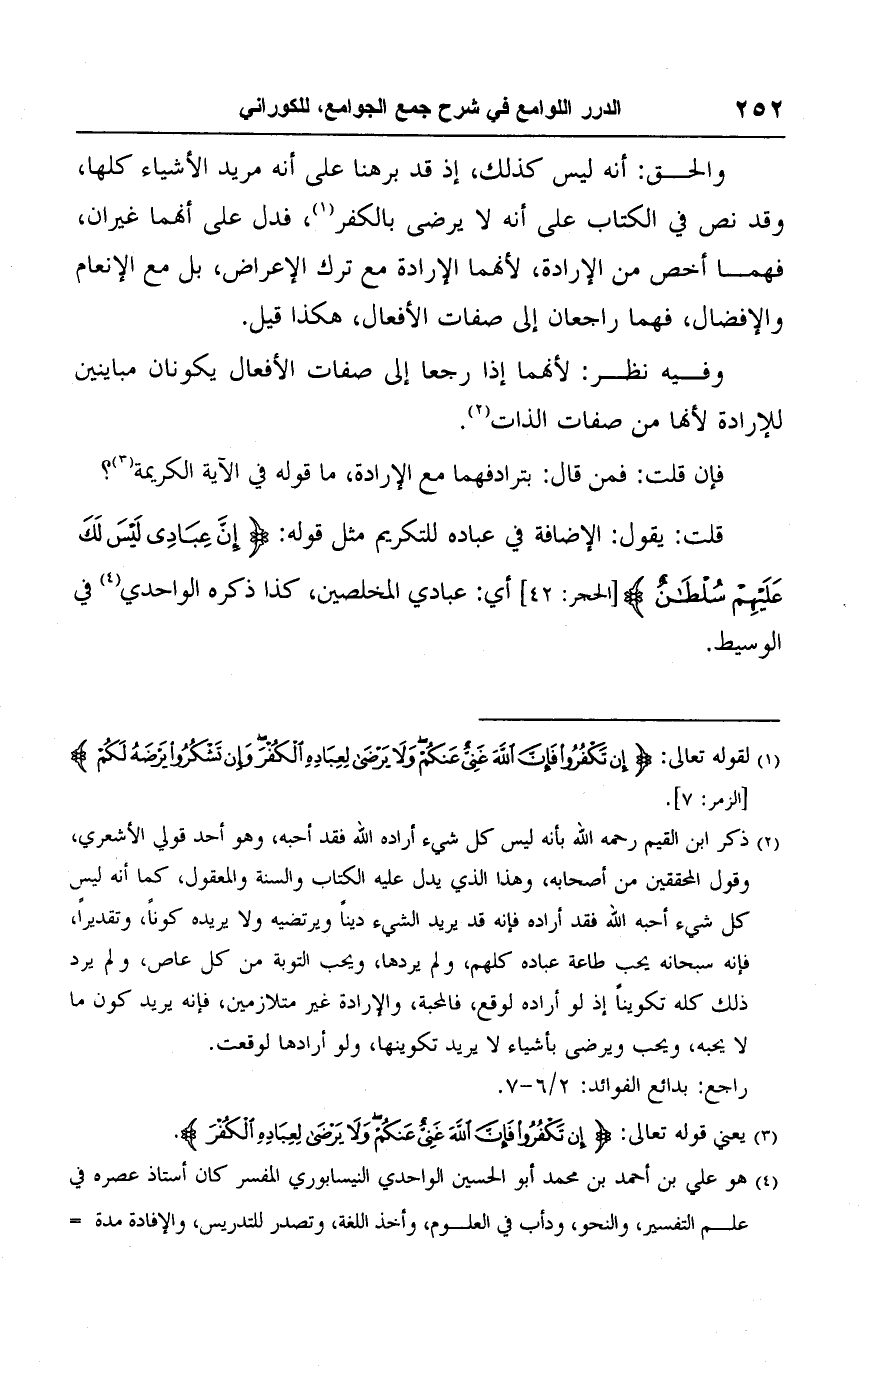 ٢٥٢ الدرر اللوامع في شرح جمع الجوامع، للكوراني
والحـــق: أنه ليس كذلك، إذ قد برهنا على أنه مريد الأشياء كلها،
وقد نص في الكتاب على أنه لا يرضى بالكفر(١)، فدل على أنهما غيران،
فهمـــا أخص من الإرادة، لأنهما الإرادة مع ترك الإعراض، بل مع الإنعام
والإفضال، فهما راجعان إلى صفات الأفعال، هكذا قيل.
وفـــيه نظـــر: لأنهما إذا رجعا إلى صفات الأفعال يكونان مباينين
للإرادة لأنها من صفات الذات(٢).
فإن قلت: فمن قال: بترادفهما مع الإرادة، ما قوله في الآية الكريمة(٣)؟
قلت: يقول: الإضافة في عباده للتكريم مثل قوله: ﴿ إِنَّ عِبَادِى لَيْسَ لَكَ
عَلَيْهِمْ سُلْطَـٰنٌ ﴾ [الحجر: ٤٢] أي: عبادي المخلصين، كذا ذكره الواحدي(٤) في
الوسيط.
(١) لقوله تعالى: ﴿ إِن تَكْفُرُوا۟ فَإِنَّ ٱللَّهَ غَنِىٌّ عَنكُمْ ۖ وَلَا يَرْضَىٰ لِعِبَادِهِ ٱلْكُفْرَ ۖ وَإِن تَشْكُرُوا۟ يَرْضَهُ لَكُمْ ﴾
[الزمر: ٧].
(٢) ذكر ابن القيم رحمه الله بأنه ليس كل شيء أراده الله فقد أحبه، وهو أحد قولي الأشعري،
وقول المحققين من أصحابه، وهذا الذي يدل عليه الكتاب والسنة والمعقول، كما أنه ليس
كل شيء أحبه الله فقد أراده فإنه قد يريد الشيء ديناً ويرتضيه ولا يريده كوناً، وتقديراً،
فإنه سبحانه يحب طاعة عباده كلهم، ولم يردها، ويحب التوبة من كل عاص، ولم يرد
ذلك كله تكويناً إذ لو أراده لوقع، فالمحبة، والإرادة غير متلازمين، فإنه يريد كون ما
لا يحبه، ويحب ويرضى بأشياء لا يريد تكوينها، ولو أرادها لوقعت.
راجع: بدائع الفوائد: ٢/ ٦-٧.
(٣) يعني قوله تعالى: ﴿ إِن تَكْفُرُوا۟ فَإِنَّ ٱللَّهَ غَنِىٌّ عَنكُمْ ۖ وَلَا يَرْضَىٰ لِعِبَادِهِ ٱلْكُفْرَ ﴾.
(٤) هو علي بن أحمد بن محمد أبو الحسين الواحدي النيسابوري المفسر كان أستاذ عصره في
علـــم التفسير، والنحو، ودأب في العلـــوم، وأخذ اللغة، وتصدر للتدريس، والإفادة مدة =